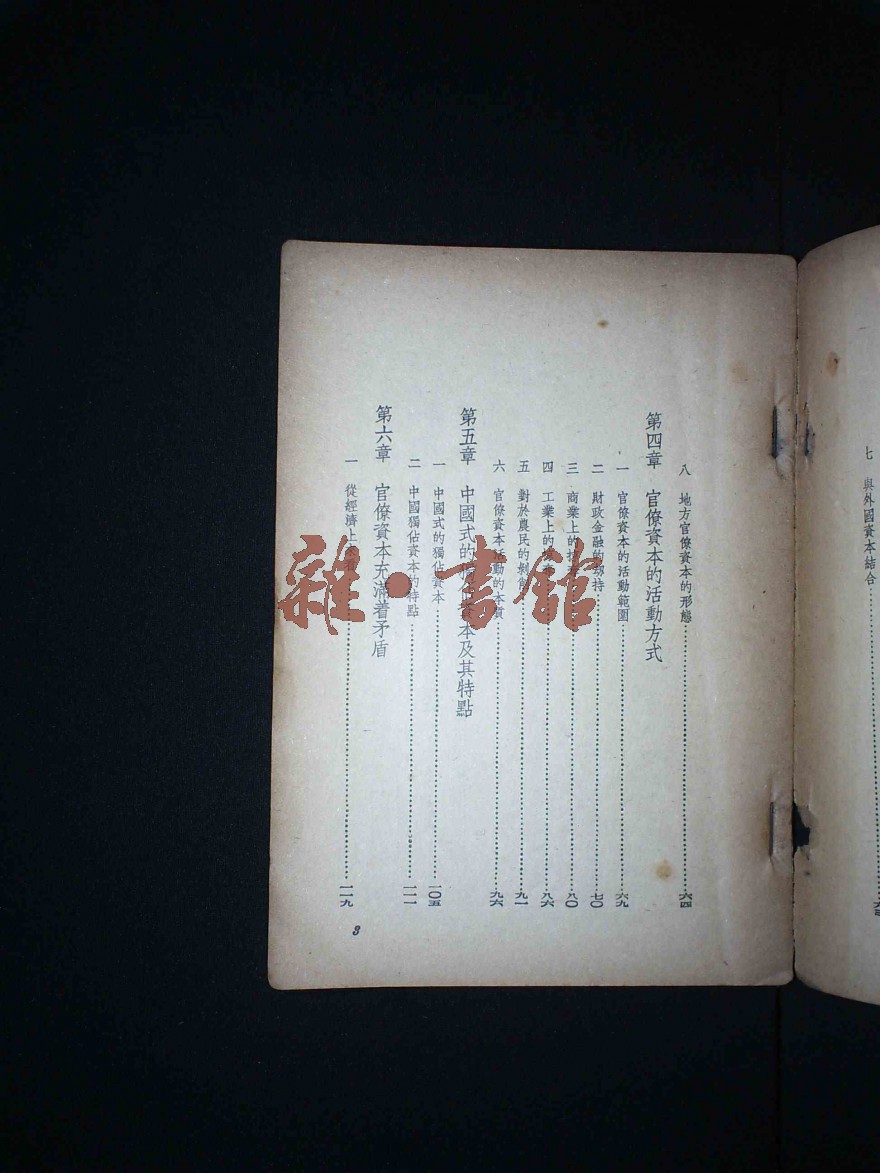 七 與外國資本結合……六三
八 地方官僚資本的形態……六四
第四章 官僚資本的活動方式
一 官僚資本的活動範圍……六九
二 財政金融的 持……七〇
三 商業上的 ……八〇
四 工業上的 ……八六
五 對於農民的剝 ……九一
六 官僚資本活動的本質……九六
第五章 中國式的 資本及其特點
一 中國式的獨佔資本……一〇五
二 中國獨佔資本的特點……一一一
第六章 官僚資本充滿着矛盾
一 從經濟上 ……一一九
3
雜·書館